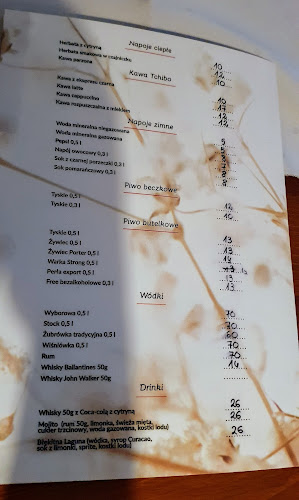 Napoje ciepłe
Herbata z cytryną 10
Herbata smakowa w czajniczku 12
Kawa parzona 10
Kawa Tchibo
Kawa z ekspresu czarna 10
Kawa latte 17
Kawa cappuccino 12
Kawa rozpuszczalna z mlekiem 12
Napoje zimne
Woda mineralna niegazowana
Woda mineralna gazowana
Pepsi 0,5 l
Napój owocowy 0,3 l
Sok z czarnej porzeczki 0,3 l
Sok pomarańczowy 0,3 l
Piwo beczkowe
Tyskie 0,5 l 12
Tyskie 0,3 l 10
Piwo butelkowe
Tyskie 0,5 l 13
Żywiec 0,5 l 13
Żywiec Porter 0,5 l
Warka Strong 0,5 l 13
Perła export 0,5 l 13
Free bezalkoholowe 0,3 l 13
Wódki
Wyborowa 0,5 l 70
Stock 0,5 l 70
Żubrówka tradycyjna 0,5 l 60
Wiśniówka 0,5 l 70
Rum 70
Whisky Ballantines 50g 14
Whisky John Walker 50g
Drinki
Whisky 50g z Coca-colą z cytryną 26
Mojito (rum 50g, limonka, świeża mięta, 26
cukier trzcinowy, woda gazowana, kostki lodu)
Błękitna Laguna (wódka, syrop Curacao, 26
sok z limonki, sprite, kostki lodu)